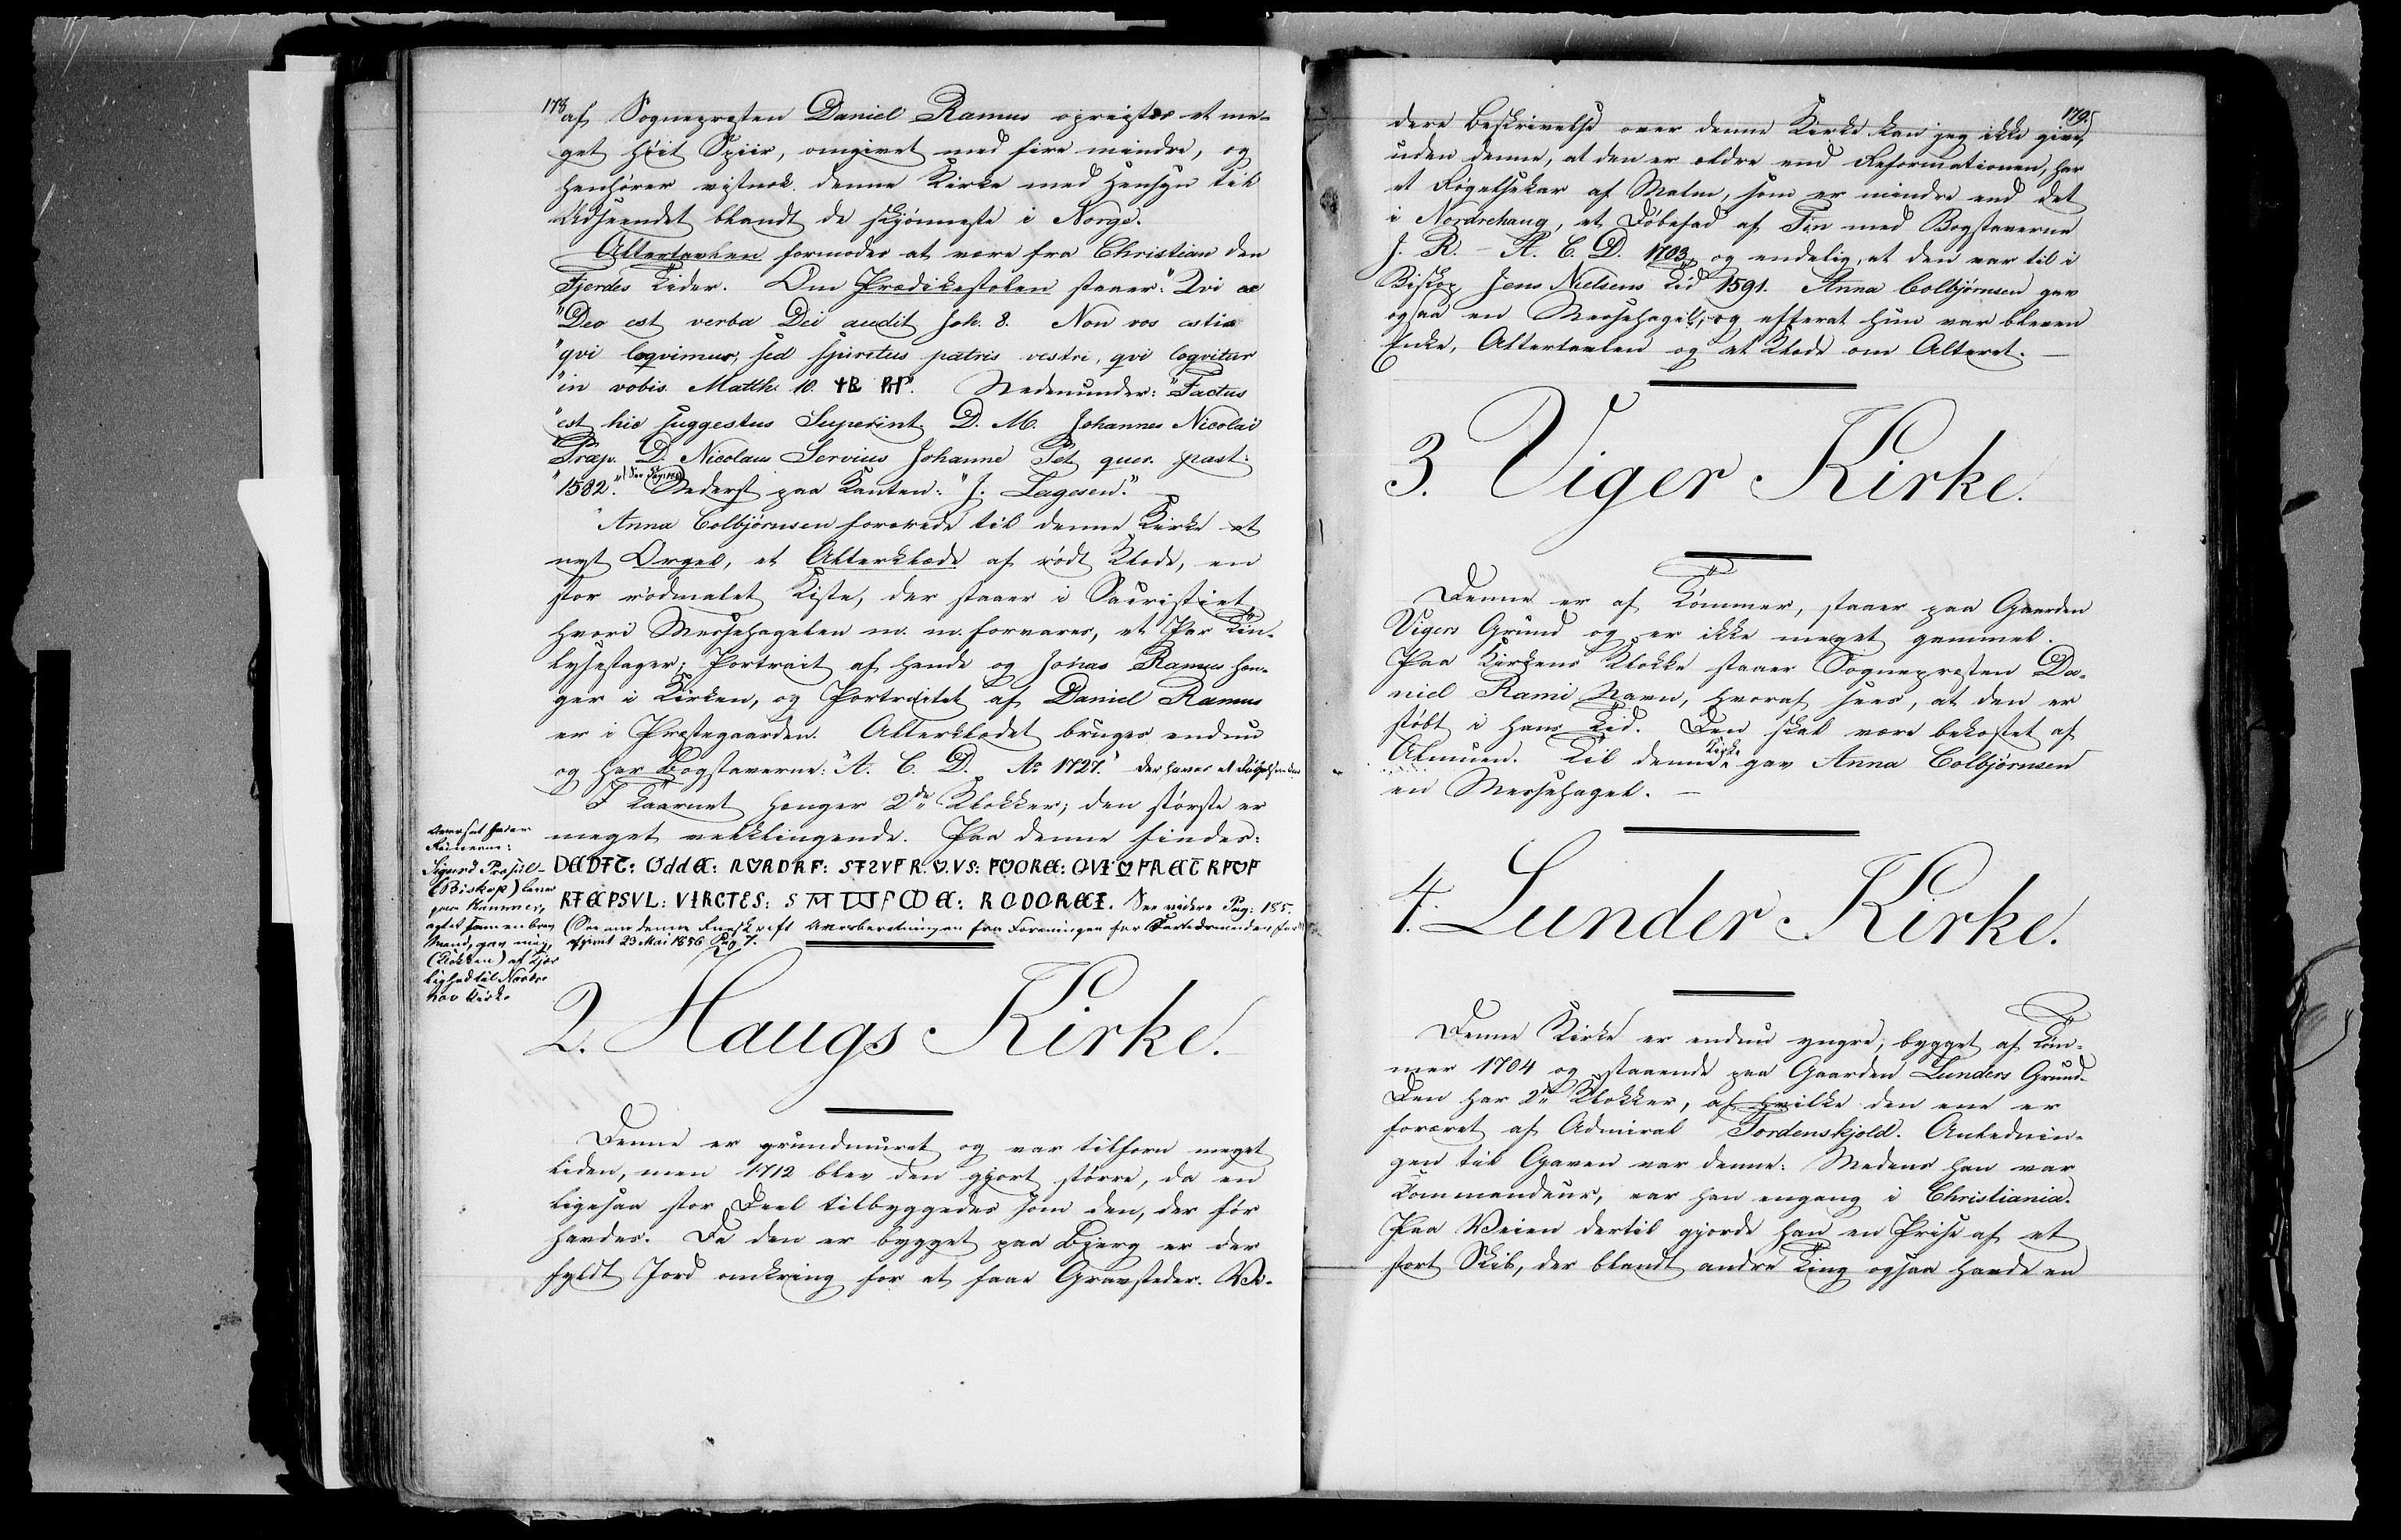 178
af Sognepresten Daniel Ramus opreistes et me-
get höit Spiir, omgivet med fire mindre, og
henhører vistnok denne Kirke med Hensyn til
Udseendet blandt de skjønneste i Norge.
Altertavlen formodes at være fra Christian den
Fjerdes Tider. Om Prædikestolen staaer: "Qvi ex
"Deo est verba Dei audit Joh. 8. Non vos estis
"qvi loqvimur, sed spiritus patris vestri, qvi loqvitur
"in vobis. Matth. 10. Nedenunder: "Factus
"est hic suggestus Superint. D. M. Johannes Nicolai
"Præp. D. Nicolaus Servius Johanne Pet. past:
"1582." Nederst paa Kanten: "J. Lagesen."
Anna Colbjørnsen forærede til denne Kirke et
nyt Orgel, et Alterklæde af rödt Klæde, en
stor rödmalet Kiste, der staaer i Sacristiet
hvori Messehagelen m. m. forvares, et Par Tin-
lysestager; Portrait af hende og Jonas Ramus hæn-
ger i Kirken, og Portraitet af Daniel Ramus
er i Præstegaarden. Alterklædet bruges endnu
og har Bogstaverne: "A. C. D. Ao 1727." der haves et Røgelsekar
I Taarnet hænger 2de Klokker; den største er
meget velklingende. Paa denne findes:
See videre Pag: 185.
(See om denne Indskrift Aarsberetningen fra Foreningen for Fortidsminder
23 Mai 1856 Pag 7.
Oversat heder
Runerne:
Sigurd Prosul-
(Biskop) lever
Mand, gav mig,
(Klokken) af Kjær
lighed til Nordre
hov Kirke
2. Haugs Kirke.
Denne er grundmuret og var tilforn meget
liden, men 1712 blev den gjort større, da en
ligesaa stor Deel tilbyggedes som den, der før
havdes. Da den er bygget paa Bjerg er der
fyldt Jord omkring for at faae Gravsteder. Vi-
179.
dere Beskrivelse over denne Kirke kan jeg ikke give,
uden denne, at den er ældre end Reformationen, har
et Røgelsekar af Malm, som er mindre end det
i Nordrehaug, et Döbefad af Tin med Bogstaverne
J. R. - A. C. D. 1703, og endelig, at den var til i
Biskop Jens Nielsens Tid 1591. Anna Colbjørnsen gav
ogsaa en Messehagel, og efterat hun var bleven
Enke, Altertavlen og et Klæde om Alteret. —
3. Viger Kirke.
Denne er af Tømmer, staaer paa Gaarden
Vigers Grund og er ikke meget gammel.
Paa Kirkens Klokke staaer Sognepresten Da-
niel Rami Navn, hvoraf sees, at den er
støbt i hans Tid. Den skal være bekostet af
Almuen. Til denne Kirke gav Anna Colbjørnsen
en Messehagel. —
4. Lunder Kirke.
Denne Kirke er endnu yngre, bygget af Tøm-
mer 1704 og staaende paa Gaarden Lunders Grund.
Den har 2de Klokker, af hvilke den ene er
foræret af Admiral Tordenskjold. Anlednin-
gen til Gaven var denne: Medens han var
Commandeur, var han engang i Christiania.
Paa Veien dertil gjorde han en Prise af et
stort Skib, der blandt andre Ting ogsaa havde en